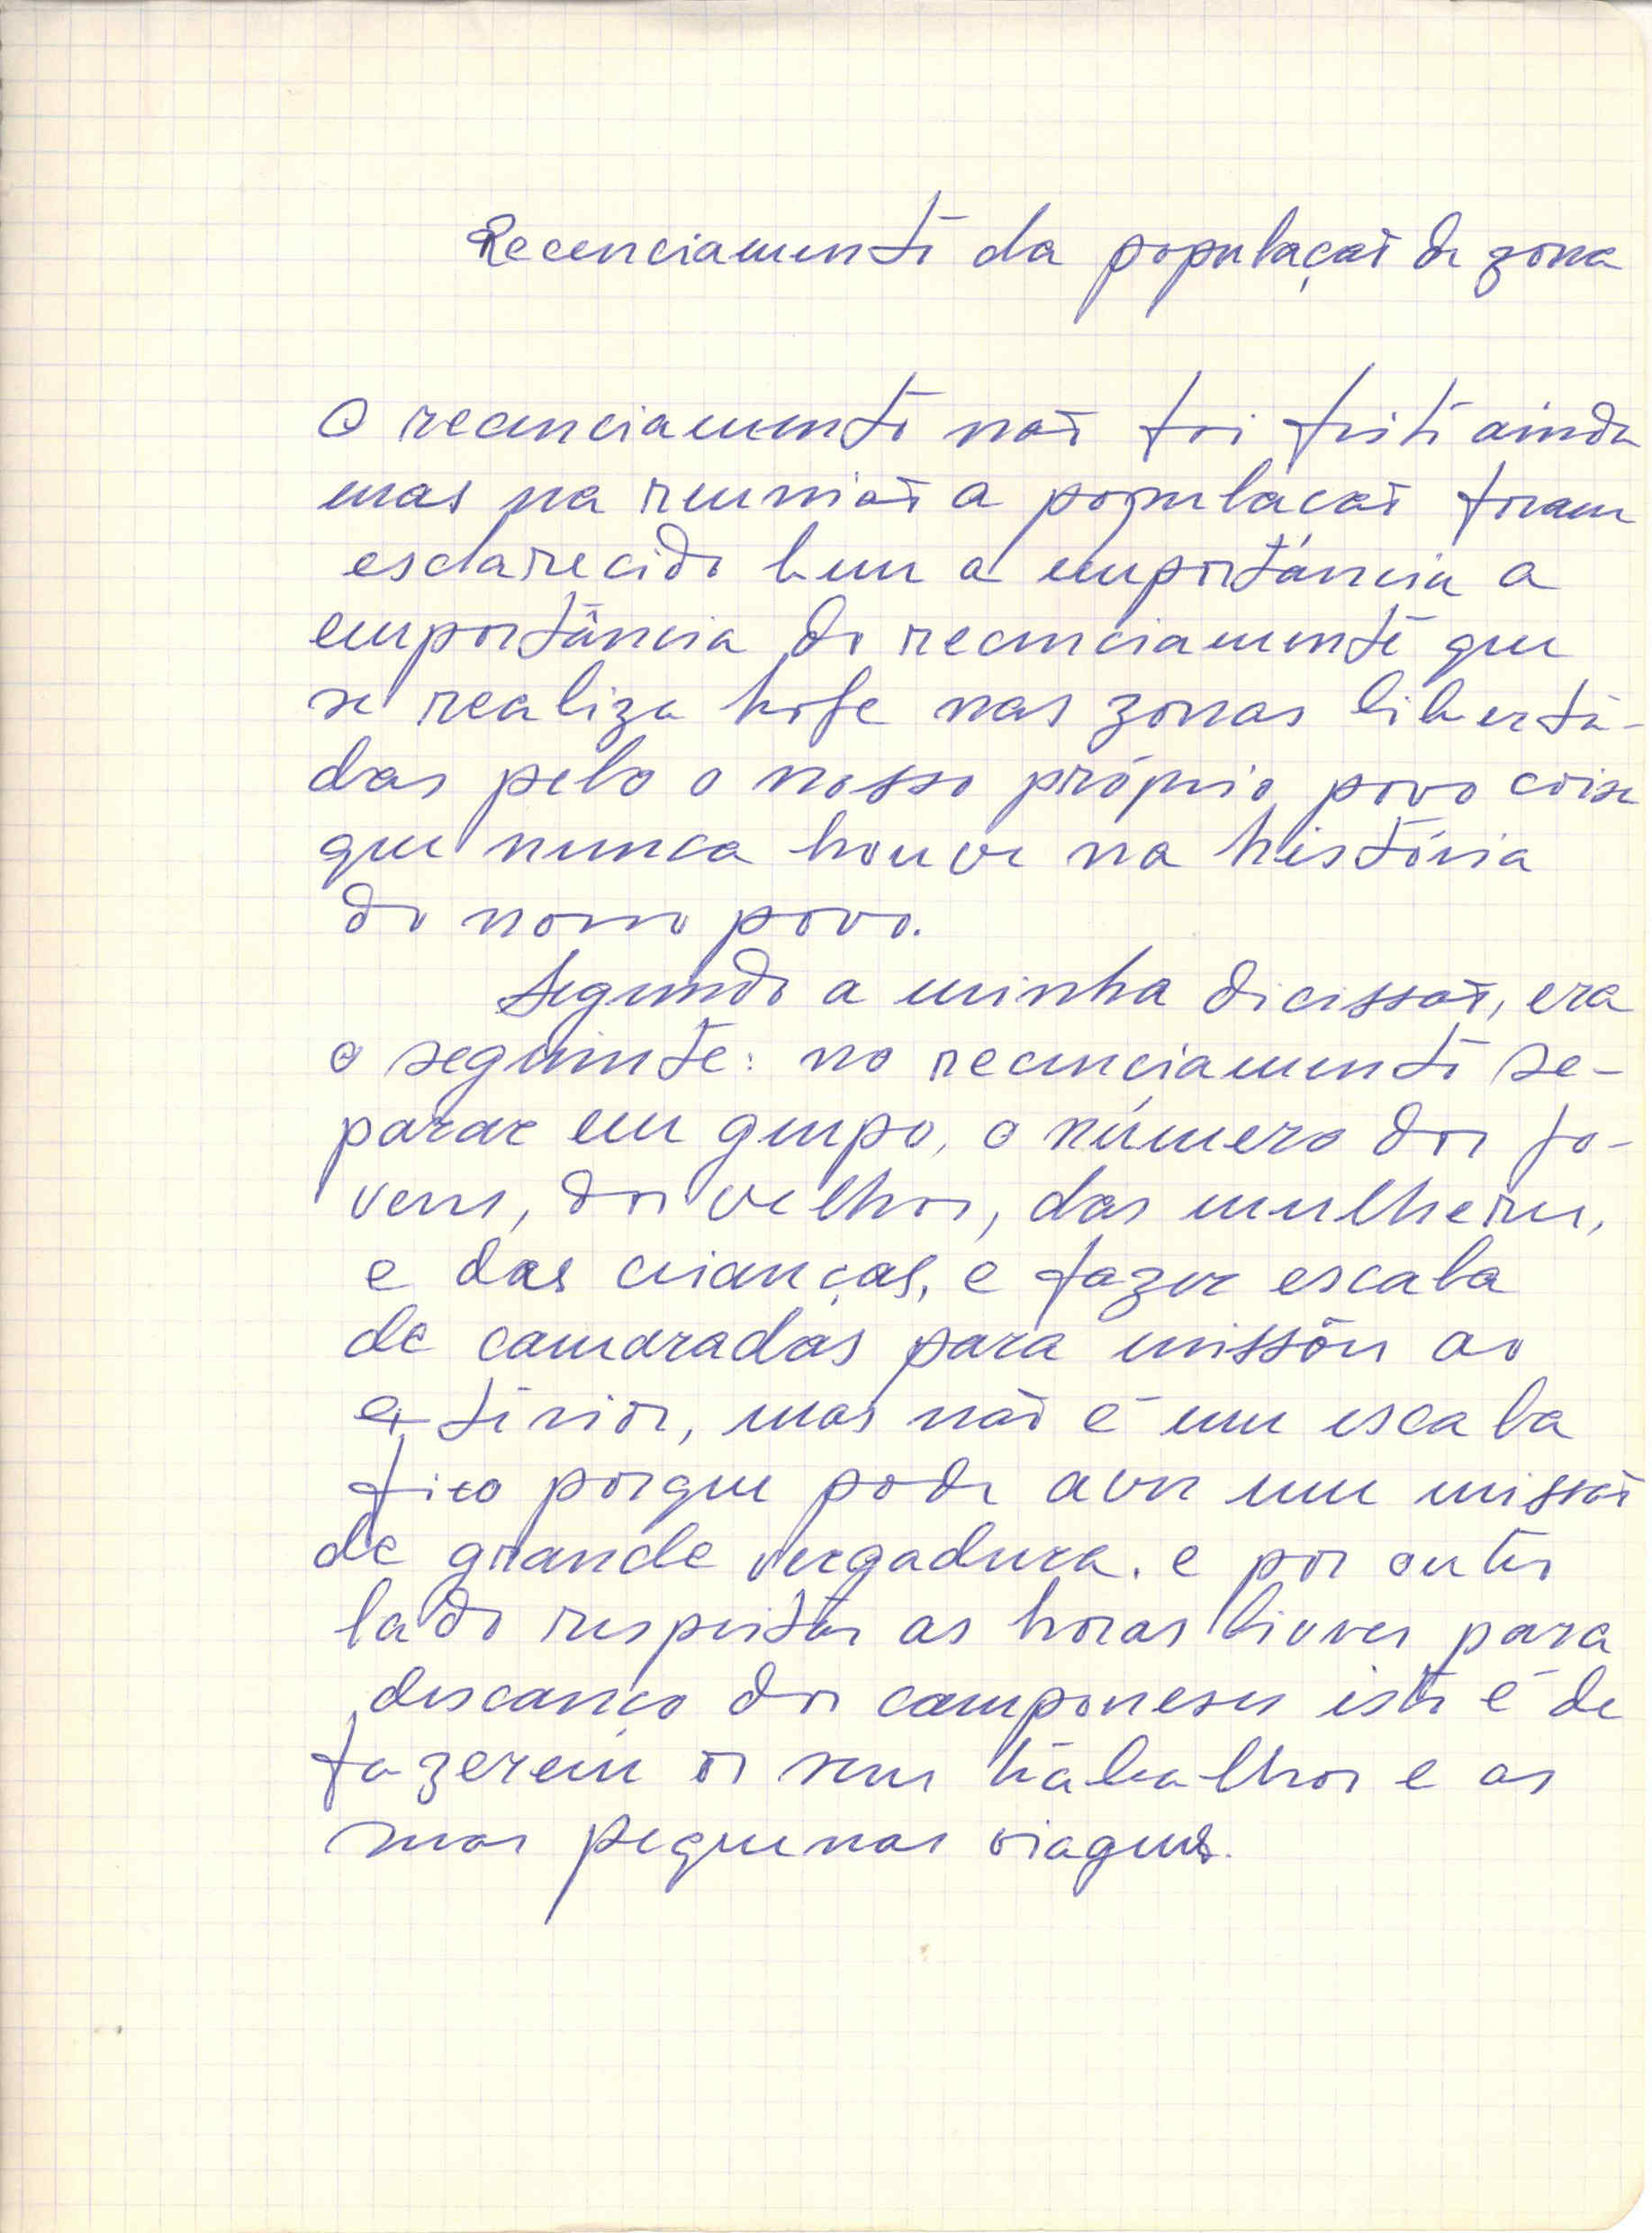 Recenciamento da população de zona
O recenciamento não foi feito ainda
mas na reunião a população foram
esclarecido bem a emportáncia a
emportância do recenciamento que
se realiza hoje nas zonas liberta-
das pelo o nosso próprio povo coisa
que nunca houve na história
do nosso povo.
Segundo a minha dicissão, era
o seguinte: no recenciamento se-
parar em grupo, o número dos jo-
vens, dos velhos, das mulheres,
e das crianças, e fazer escala
de camaradas para missões ao
extirior, mas não é um escala
fixo porque pode aver um missão
de grande vergadura. e por outro
lado respeitar as horas livres para
descanço dos camponeses isto é de
fazerem os seus trabalhos e as
suas pequenas viagens.